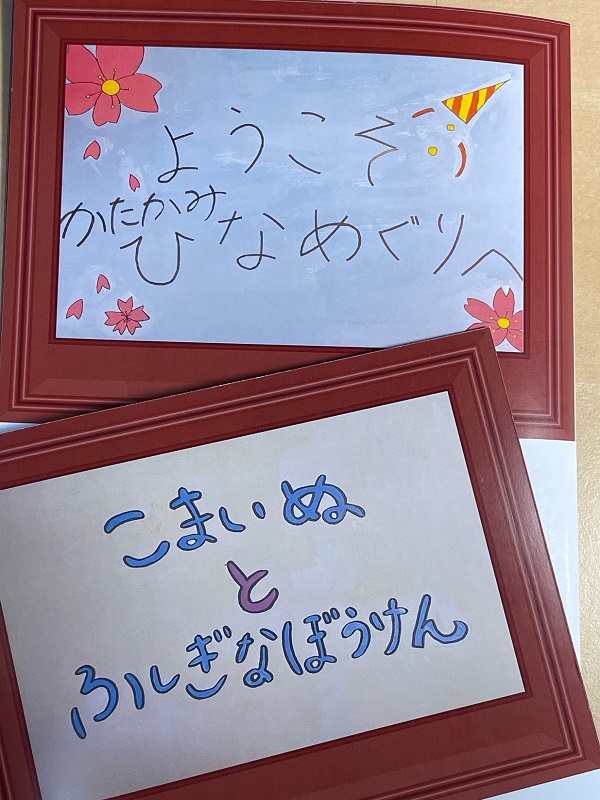 ようこそ
かたかみ
ひなめぐりへ
こまいぬ
と
ふしぎなぼうけん